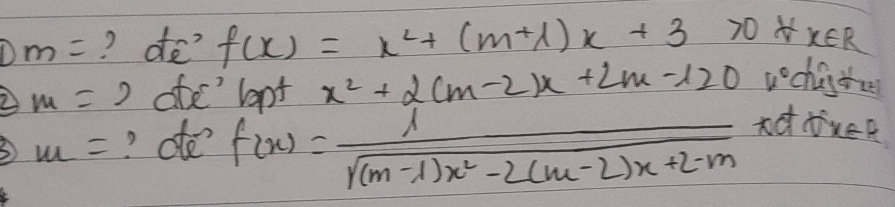 ① m = ? để f(x) = x² + (m+1)x + 3 > 0 ∀ x∈R
② m = ? để bpt x² + 2(m-2)x + 2m - 1 ≥ 0
③ m = ? để f(x) = 1 / √((m-1)x² - 2(m-2)x + 2-m) xđ ∀x∈R